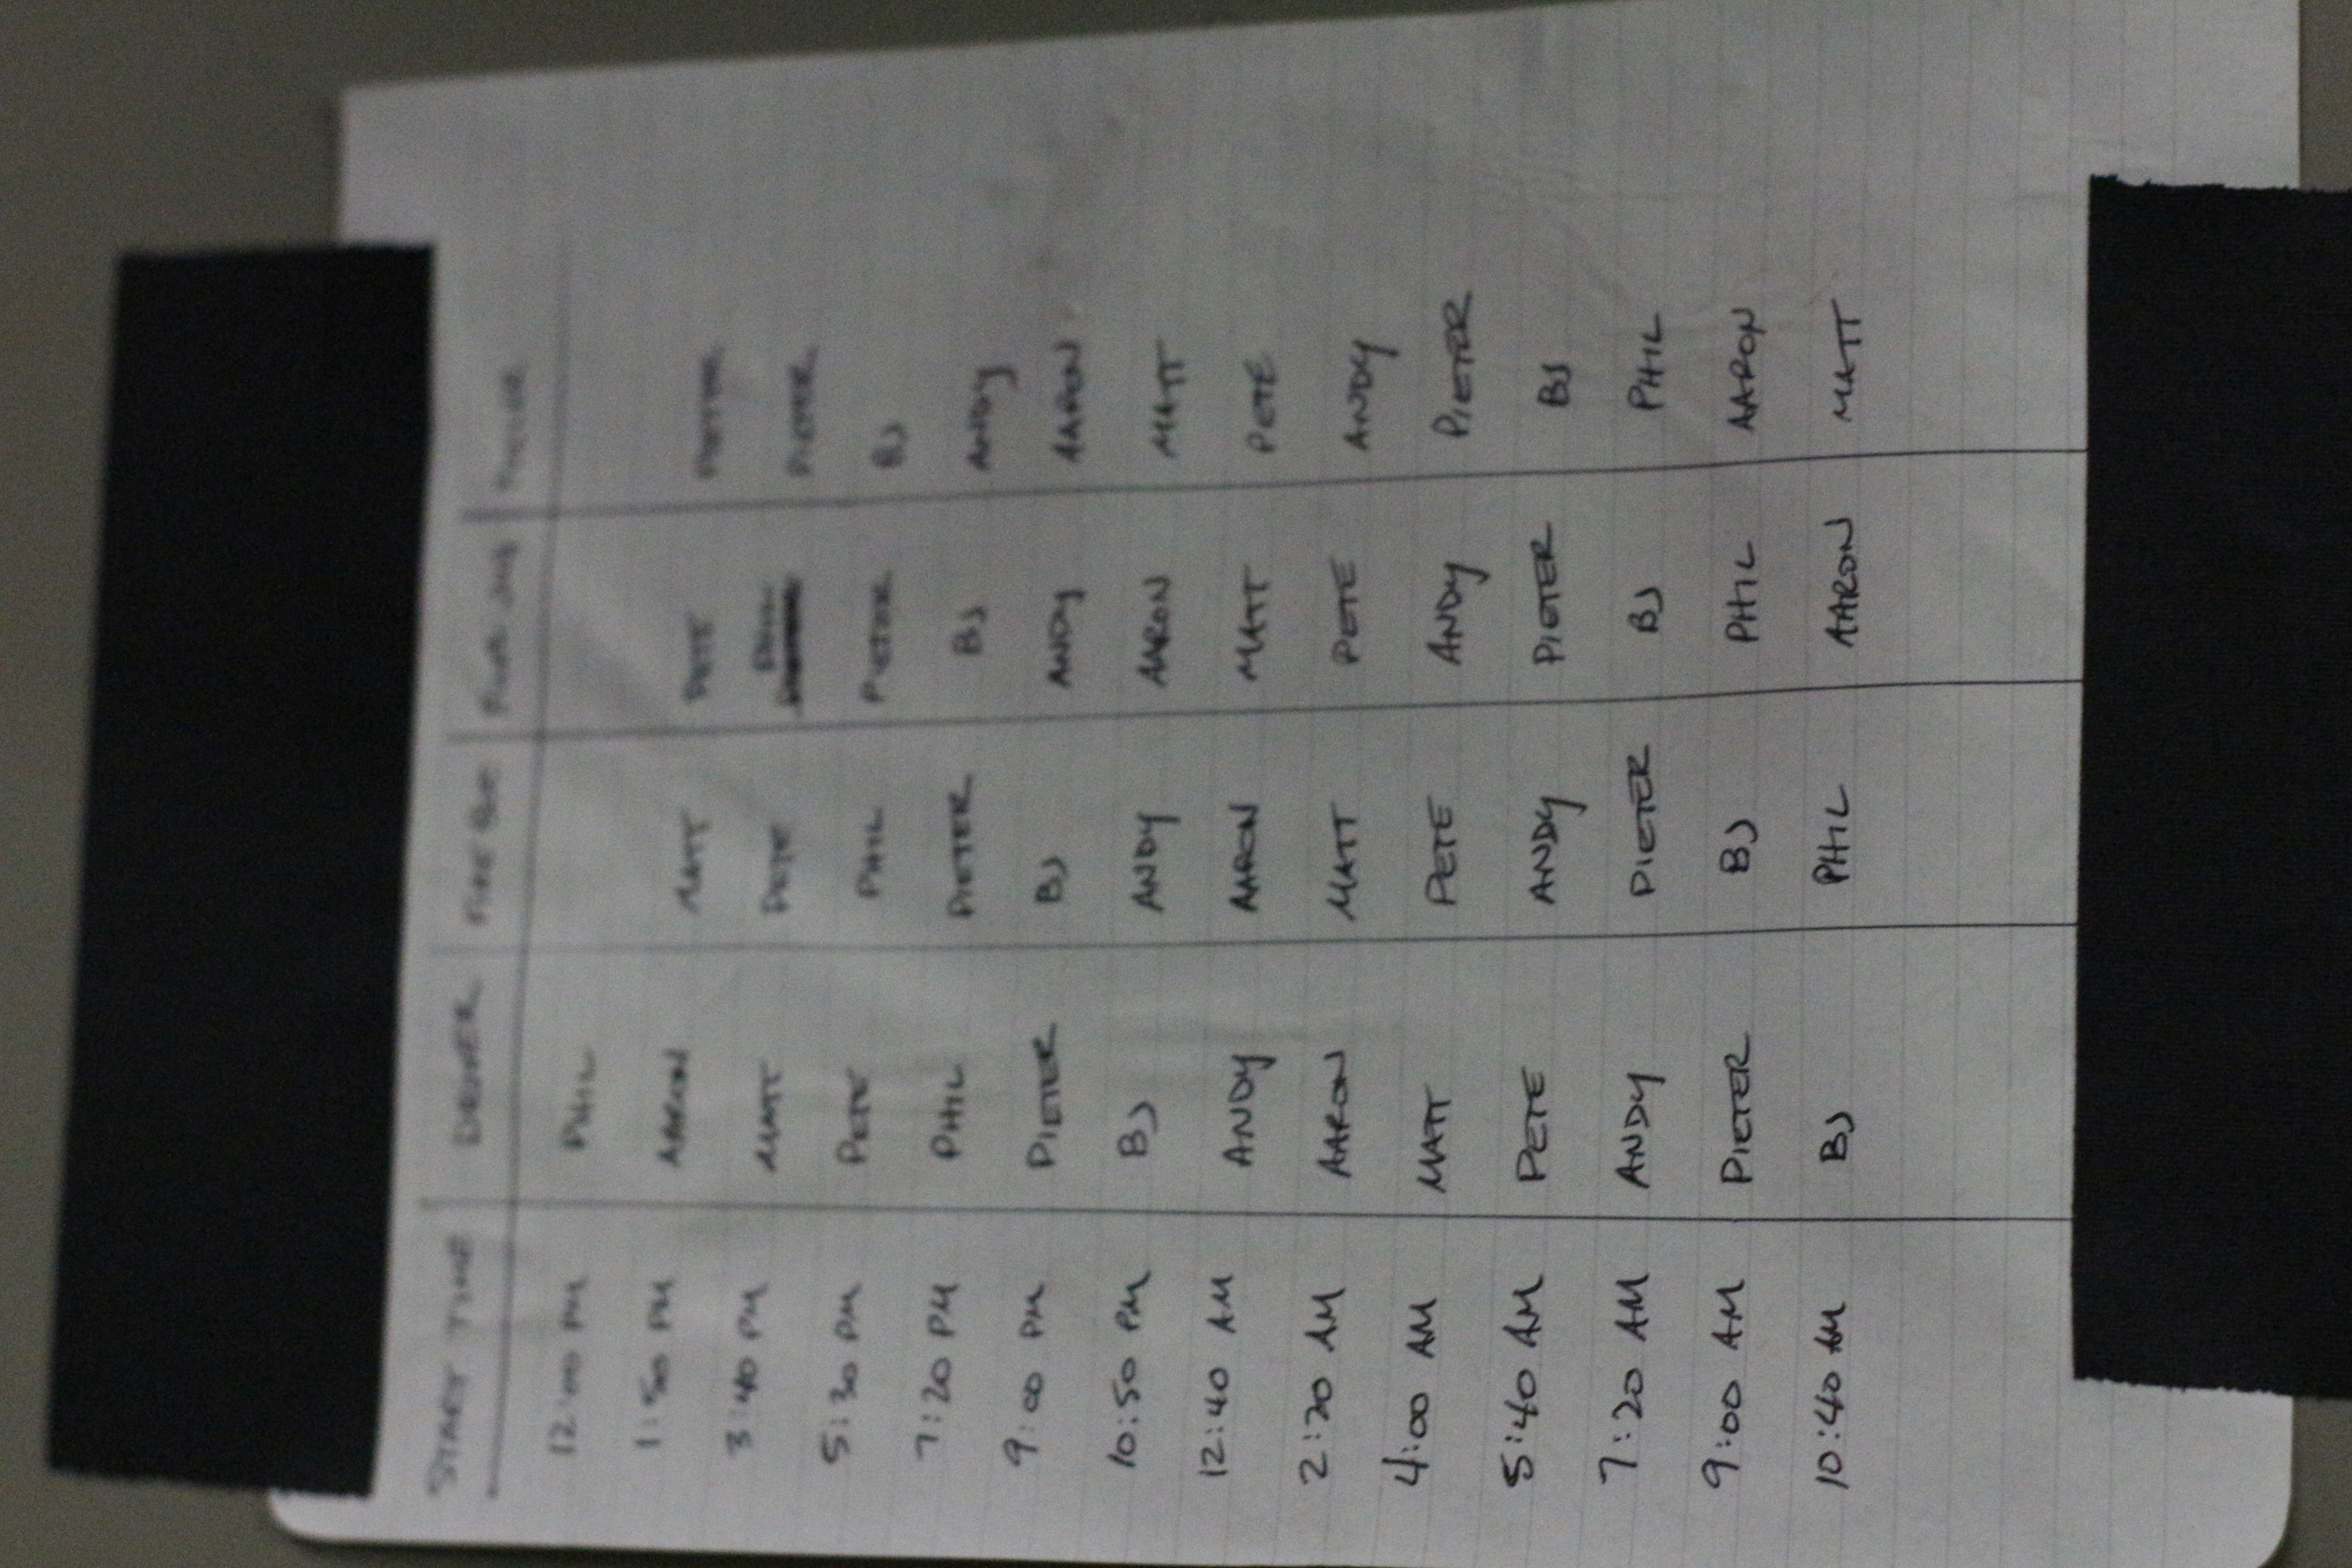 START TIME DRIVER FIRE BOT FUEL JUG
12:00 PM PHIL
1:50 PM AARON MATT PETE PIETER
3:40 PM MATT PETE PHIL PIETER
5:30 PM PETE PHIL PIETER BJ
7:20 PM PHIL PIETER BJ ANDY
9:00 PM PIETER BJ ANDY AARON
10:50 PM BJ ANDY AARON MATT
12:40 AM ANDY AARON MATT PETE
2:20 AM AARON MATT PETE ANDY
4:00 AM MATT PETE ANDY PIETER
5:40 AM PETE ANDY PIETER BJ
7:20 AM ANDY PIETER BJ PHIL
9:00 AM PIETER BJ PHIL AARON
10:40 AM BJ PHIL AARON MATT